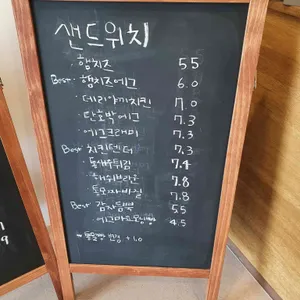 샌드위치
· 햄치즈 5.5
Best · 햄치즈에그 6.0
· 데리야끼치킨 7.0
· 단호박에그 7.3
· 에그크래미 7.3
Best 치킨텐더 7.3
· 통새우튀김 7.4
· 해쉬브라운 7.8
· 토마토바질 7.8
Best · 감자듬뿍 5.5
· 에그마요모닝빵 4.5
+ 1.0
9